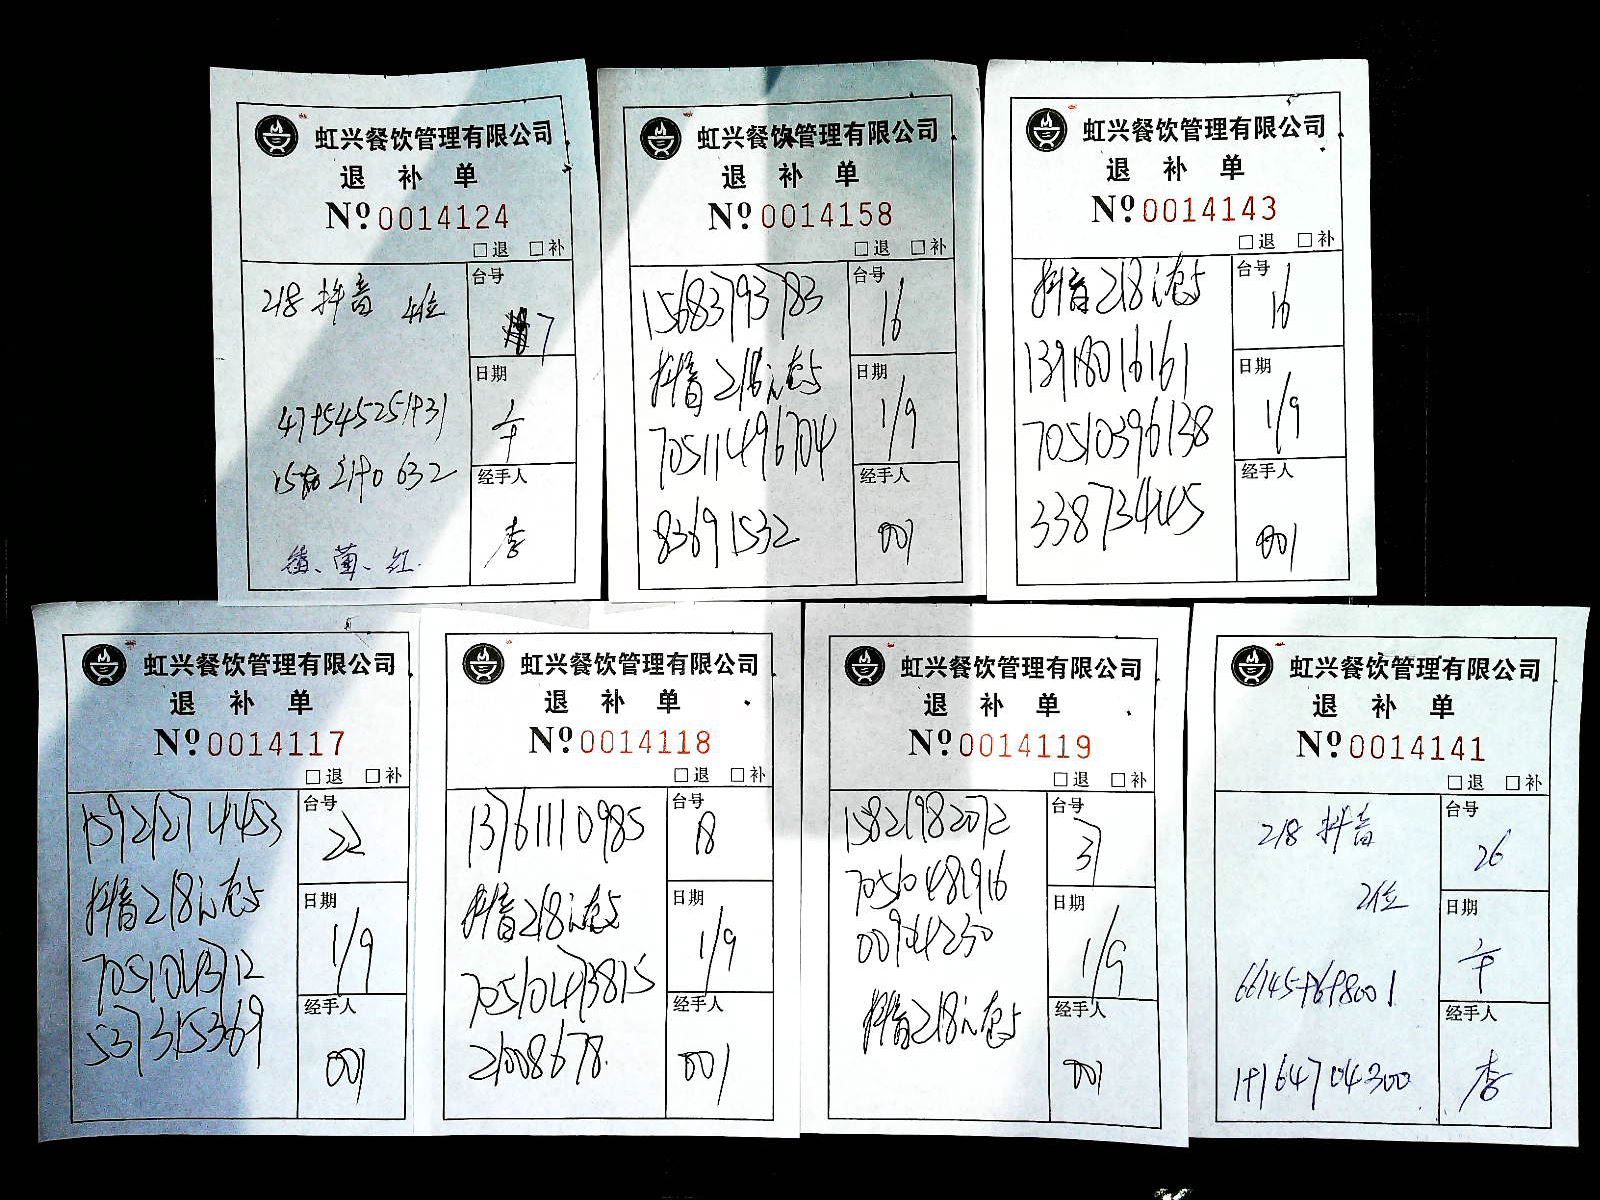 虹兴餐饮管理有限公司
退 补 单
Nº 0014124
□退 □补
218 抖音 4位
台号
7
日期
午
经手人
李
虹兴餐饮管理有限公司
退 补 单
Nº 0014158
□退 □补
15683793783
抖音218元套
70511496704
83691532
台号
16
日期
1/9
经手人
001
虹兴餐饮管理有限公司
退 补 单
Nº 0014143
□退 □补
抖音218元套
13918016161
70510396138
338734445
台号
16
日期
1/9
经手人
001
虹兴餐饮管理有限公司
退 补 单
Nº 0014117
□退 □补
15921274453
抖音218元套
7051043712
537315369
台号
22
日期
1/9
经手人
001
虹兴餐饮管理有限公司
退 补 单
Nº 0014118
□退 □补
13761110985
抖音218元套
70510473815
21008678.
台号
18
日期
1/9
经手人
001
虹兴餐饮管理有限公司
退 补 单
Nº 0014119
□退 □补
15821982072
70510482916
00944250
抖音218元套
台号
31
日期
1/9
经手人
001
虹兴餐饮管理有限公司
退 补 单
Nº 0014141
□退 □补
218 抖音
2位
台号
26
日期
午
经手人
李